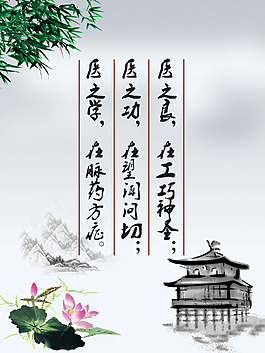 医之良，在工巧神圣；
医之功，在望闻问切；
医之学，在脉药方症。